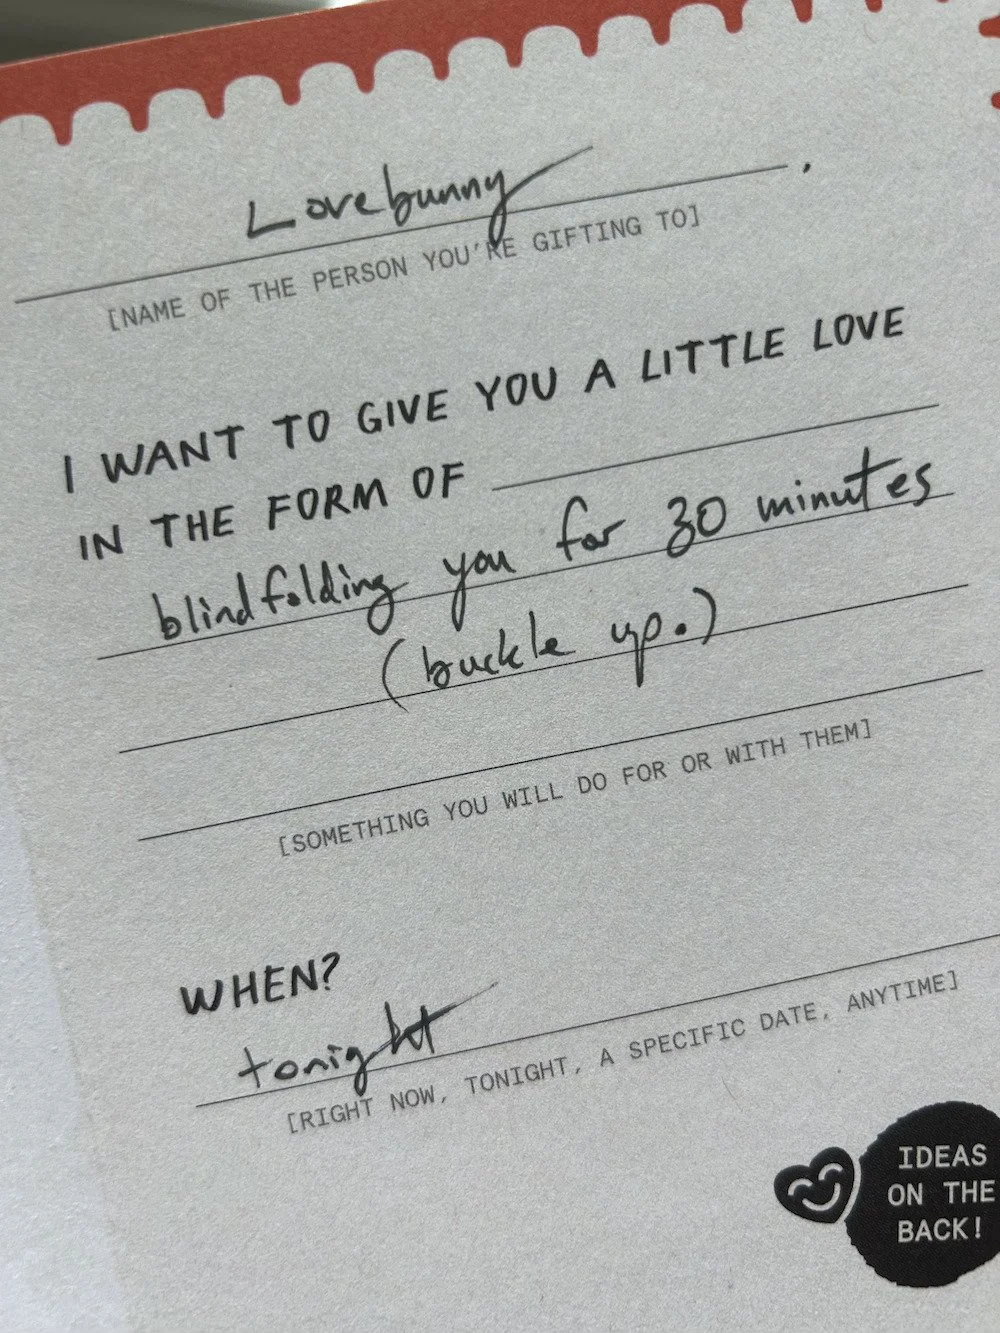 Lovebunny.
[NAME OF THE PERSON YOU'RE GIFTING TO]
I WANT TO GIVE YOU A LITTLE LOVE
IN THE FORM OF
blindfolding you for 30 minutes
(buckle up.)
[SOMETHING YOU WILL DO FOR OR WITH THEM]
WHEN?
tonight
[RIGHT NOW, TONIGHT, A SPECIFIC DATE, ANYTIME]
IDEAS
ON THE
BACK!